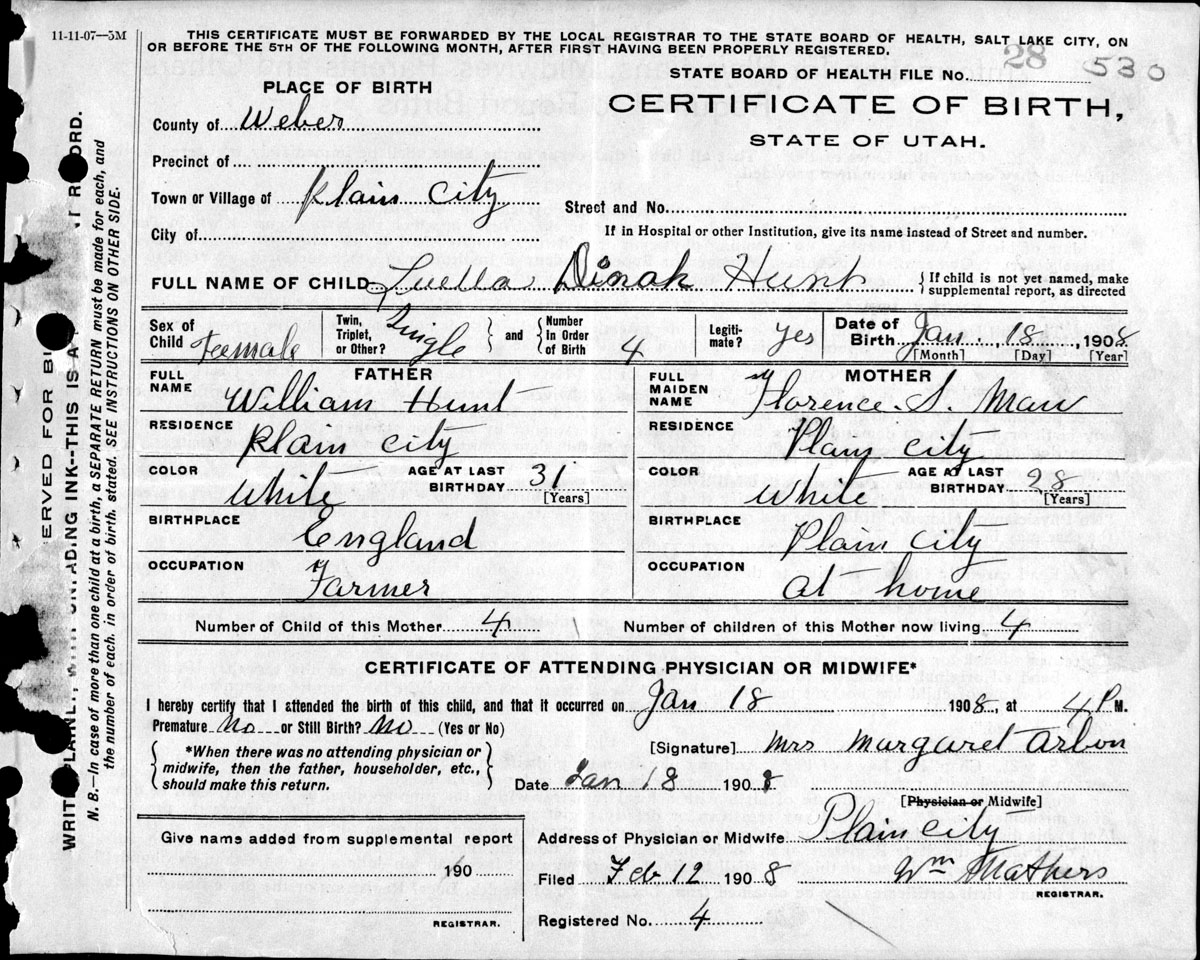 11-11-07—5M
THIS CERTIFICATE MUST BE FORWARDED BY THE LOCAL REGISTRAR TO THE STATE BOARD OF HEALTH, SALT LAKE CITY, ON
OR BEFORE THE 5TH OF THE FOLLOWING MONTH, AFTER FIRST HAVING BEEN PROPERLY REGISTERED.
STATE BOARD OF HEALTH FILE No. 28 530
PLACE OF BIRTH
CERTIFICATE OF BIRTH,
STATE OF UTAH.
County of Weber
Precinct of
Town or Village of Plain City
Street and No.
City of
If in Hospital or other Institution, give its name instead of Street and number.
FULL NAME OF CHILD Luella Dinah Hunt { If child is not yet named, make supplemental report, as directed
Sex of Child Female Twin, Triplet, or Other? Single and Number In Order of Birth 4 Legiti-mate? Yes Date of Birth Jan. 18, 1908
[Month] [Day] [Year]
FATHER
MOTHER
FULL NAME William Hunt
FULL MAIDEN NAME Florence. S. Maw
RESIDENCE Plain City
RESIDENCE Plain City
COLOR White AGE AT LAST BIRTHDAY 31 [Years]
COLOR White AGE AT LAST BIRTHDAY 28 [Years]
BIRTHPLACE England
BIRTHPLACE Plain City
OCCUPATION Farmer
OCCUPATION at home
Number of Child of this Mother 4 Number of children of this Mother now living 4
CERTIFICATE OF ATTENDING PHYSICIAN OR MIDWIFE*
I hereby certify that I attended the birth of this child, and that it occurred on Jan 18 1908, at 4 P M.
Premature No or Still Birth? No (Yes or No)
{ *When there was no attending physician or
midwife, then the father, householder, etc.,
should make this return. }
[Signature] Mrs Margaret Arbon
Date Jan 18 1908
[Physician or Midwife]
Give name added from supplemental report
190
REGISTRAR.
Address of Physician or Midwife Plain City
Filed Feb 12 1908 Wm Mathers
REGISTRAR.
Registered No. 4
ERVED FOR BI
WRITE PLAINLY, WITH UNFADING INK--THIS IS A T RECORD.
N. B.—In case of more than one child at a birth, a SEPARATE RETURN must be made for each, and
the number of each. in order of birth. stated. SEE INSTRUCTIONS ON OTHER SIDE.